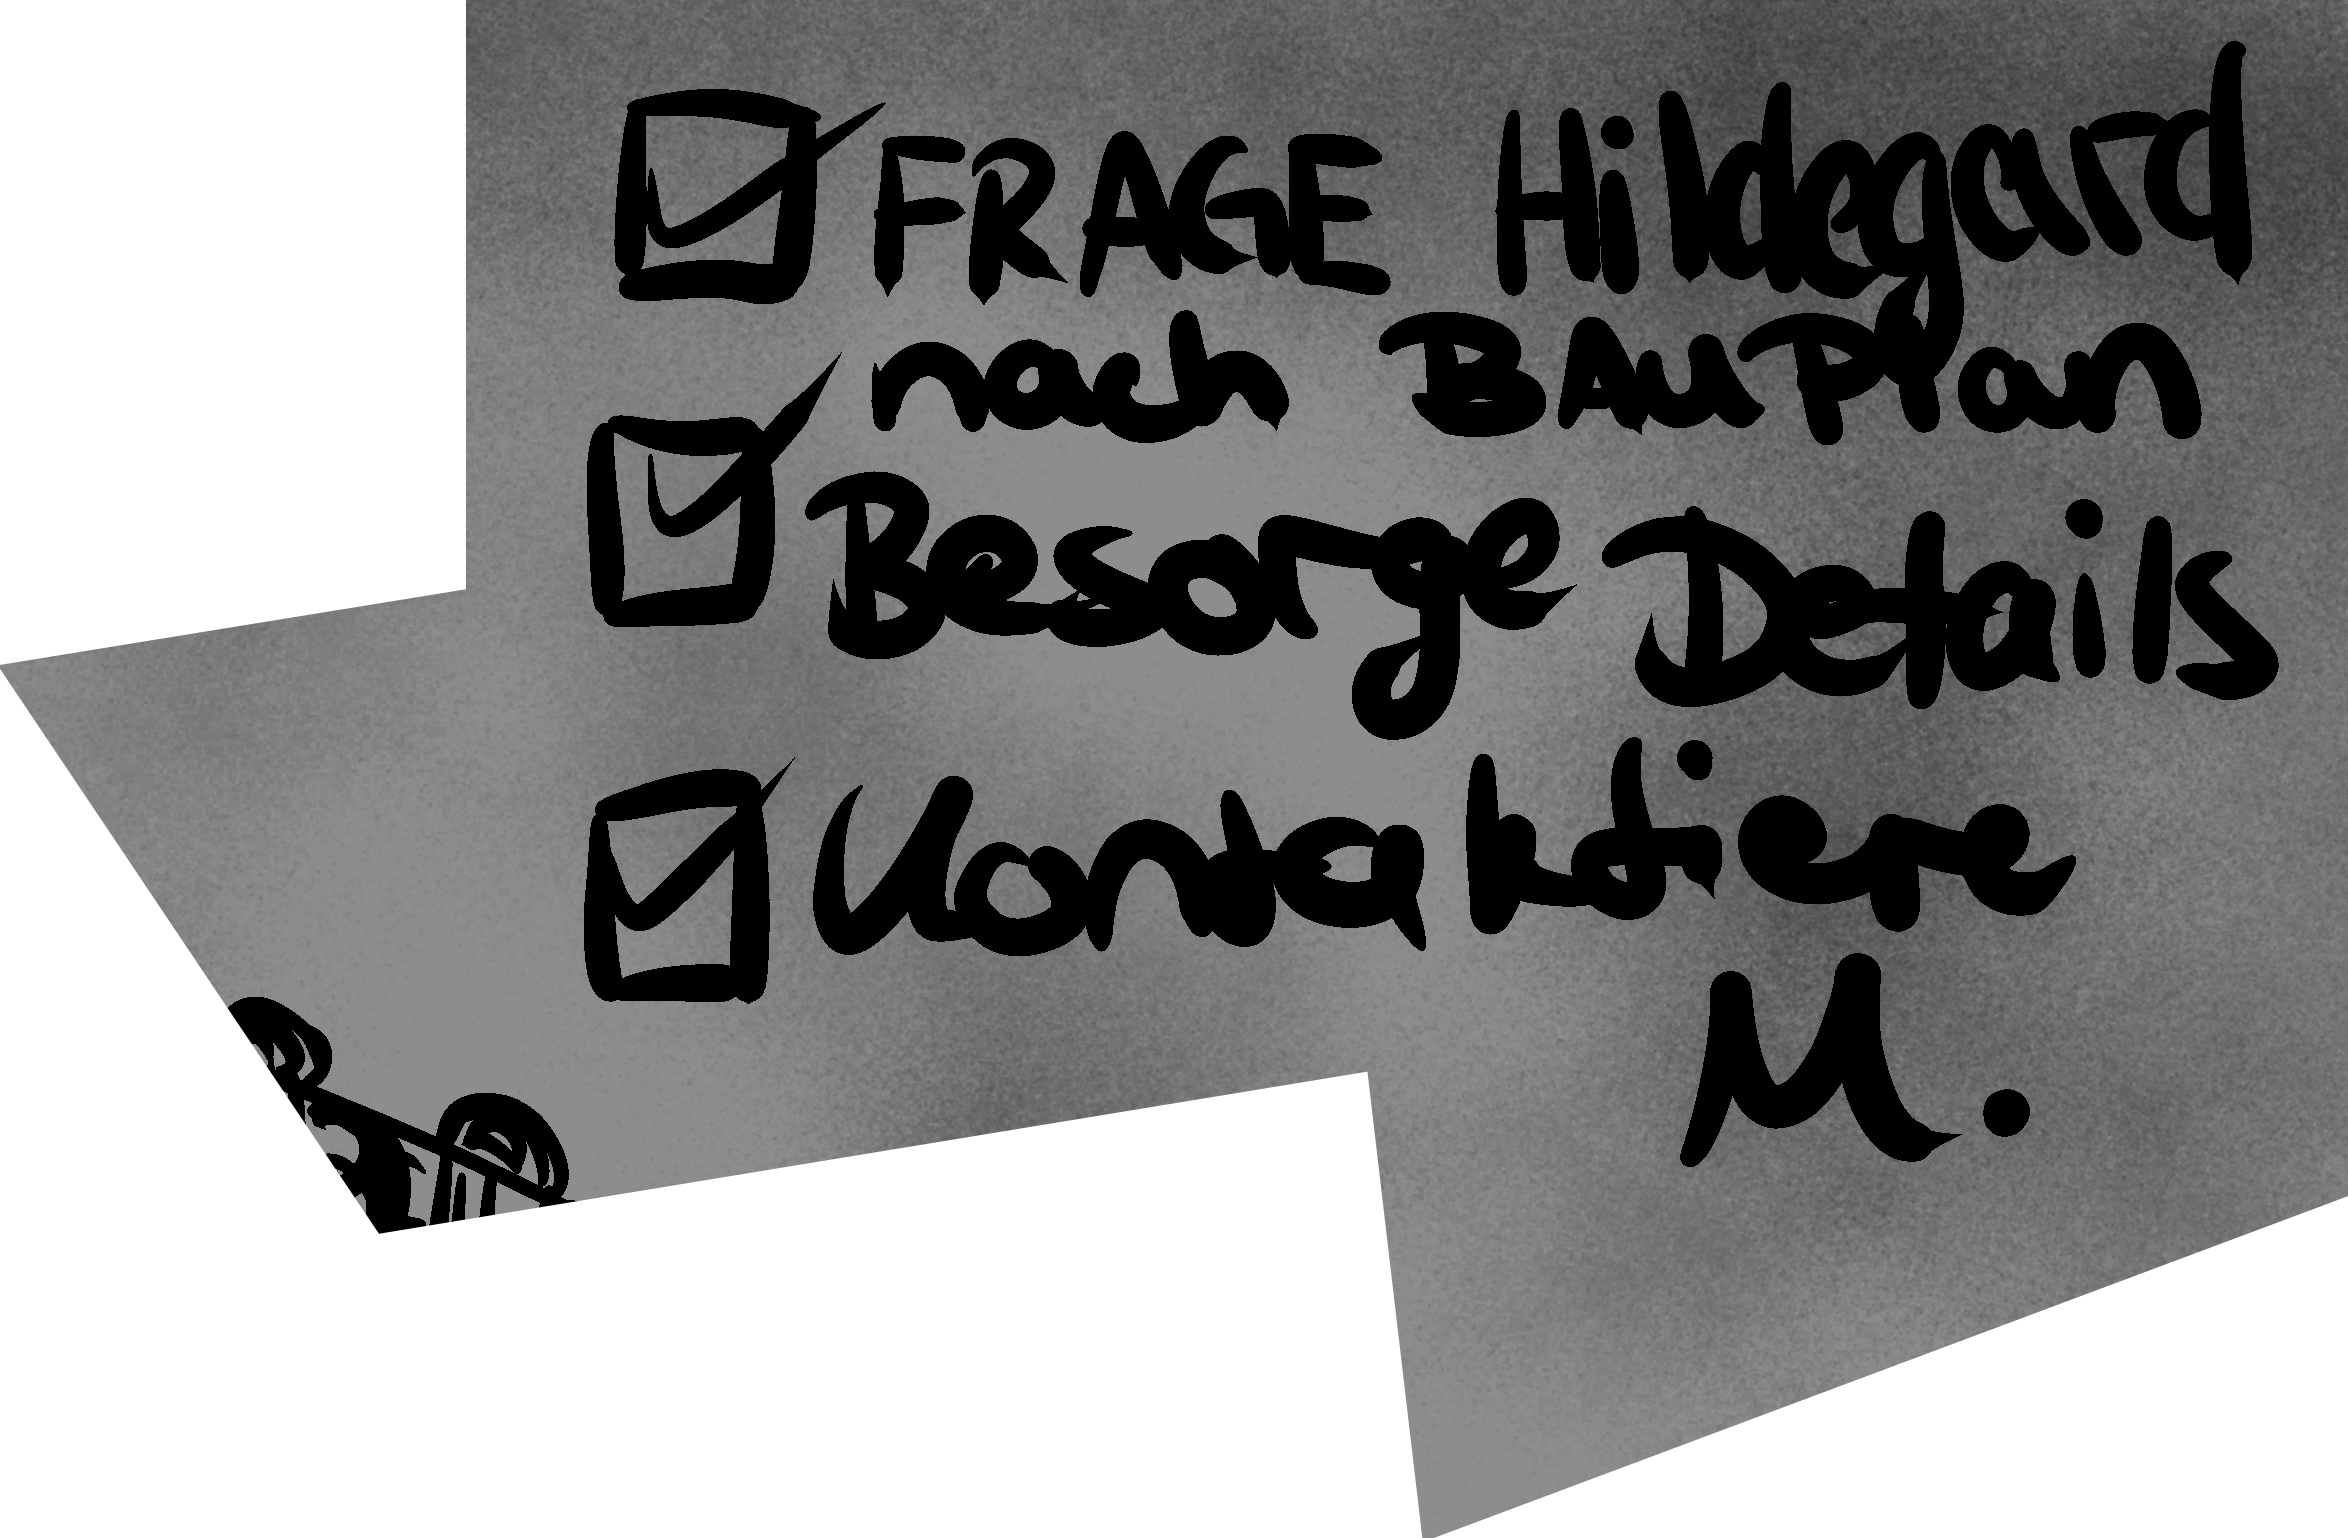 ☑ FRAGE Hildegard
nach BAuPlan
☑ Besorge Details
☑ Kontaktiere
M.